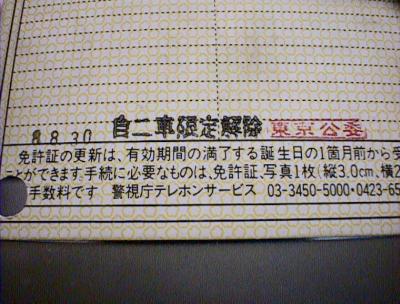 8 8.30 自二車限定解除 東京公委
免許証の更新は、有効期間の満了する誕生日の1箇月前から受
ことができます。手続に必要なものは、免許証、写真1枚(縦3.0cm、横2
手数料です 警視庁テレホンサービス 03-3450-5000・0423-65